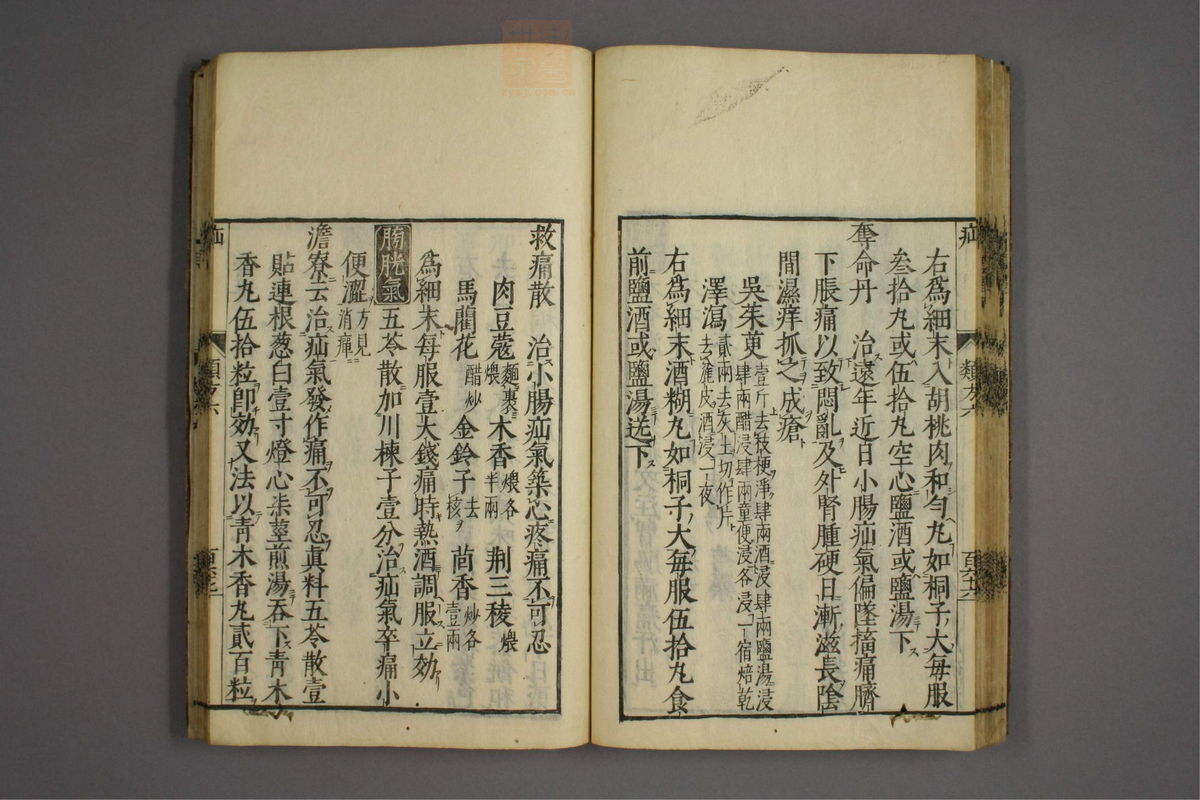 疝
右爲細末入胡桃肉和勻丸如桐子大每服
叁拾丸或伍拾丸空心鹽酒或鹽湯下
奪命丹 治遠年近日小腸疝氣偏墜搐痛臍
下脹痛以致悶亂及外腎腫硬日漸滋長陰
間濕痒抓之成瘡
吳茱萸壹斤去枝梗淨肆兩酒浸肆兩鹽湯浸肆兩醋浸肆兩童便浸各浸一宿焙乾
澤瀉貳兩去灰土切作片去麄皮酒浸一夜
右爲細末酒糊丸如桐子大每服伍拾丸食
前鹽酒或鹽湯送下
類方六
救痛散 治小腸疝氣築心疼痛不可忍
肉豆蔻麵裹煨 木香煨各半兩 荆三稜煨
馬藺花醋炒 金鈴子去核 茴香炒各壹兩
爲細末每服壹大錢痛時熱酒調服立効
膀胱氣 五苓散加川楝子壹分治疝氣卒痛小
便澀方見消癉
澹寮云治疝氣發作痛不可忍眞料五苓散壹
貼連根葱白壹寸燈心柒莖煎湯吞下靑木
香丸伍拾粒卽効又法以靑木香丸貳百粒
疝
類方六